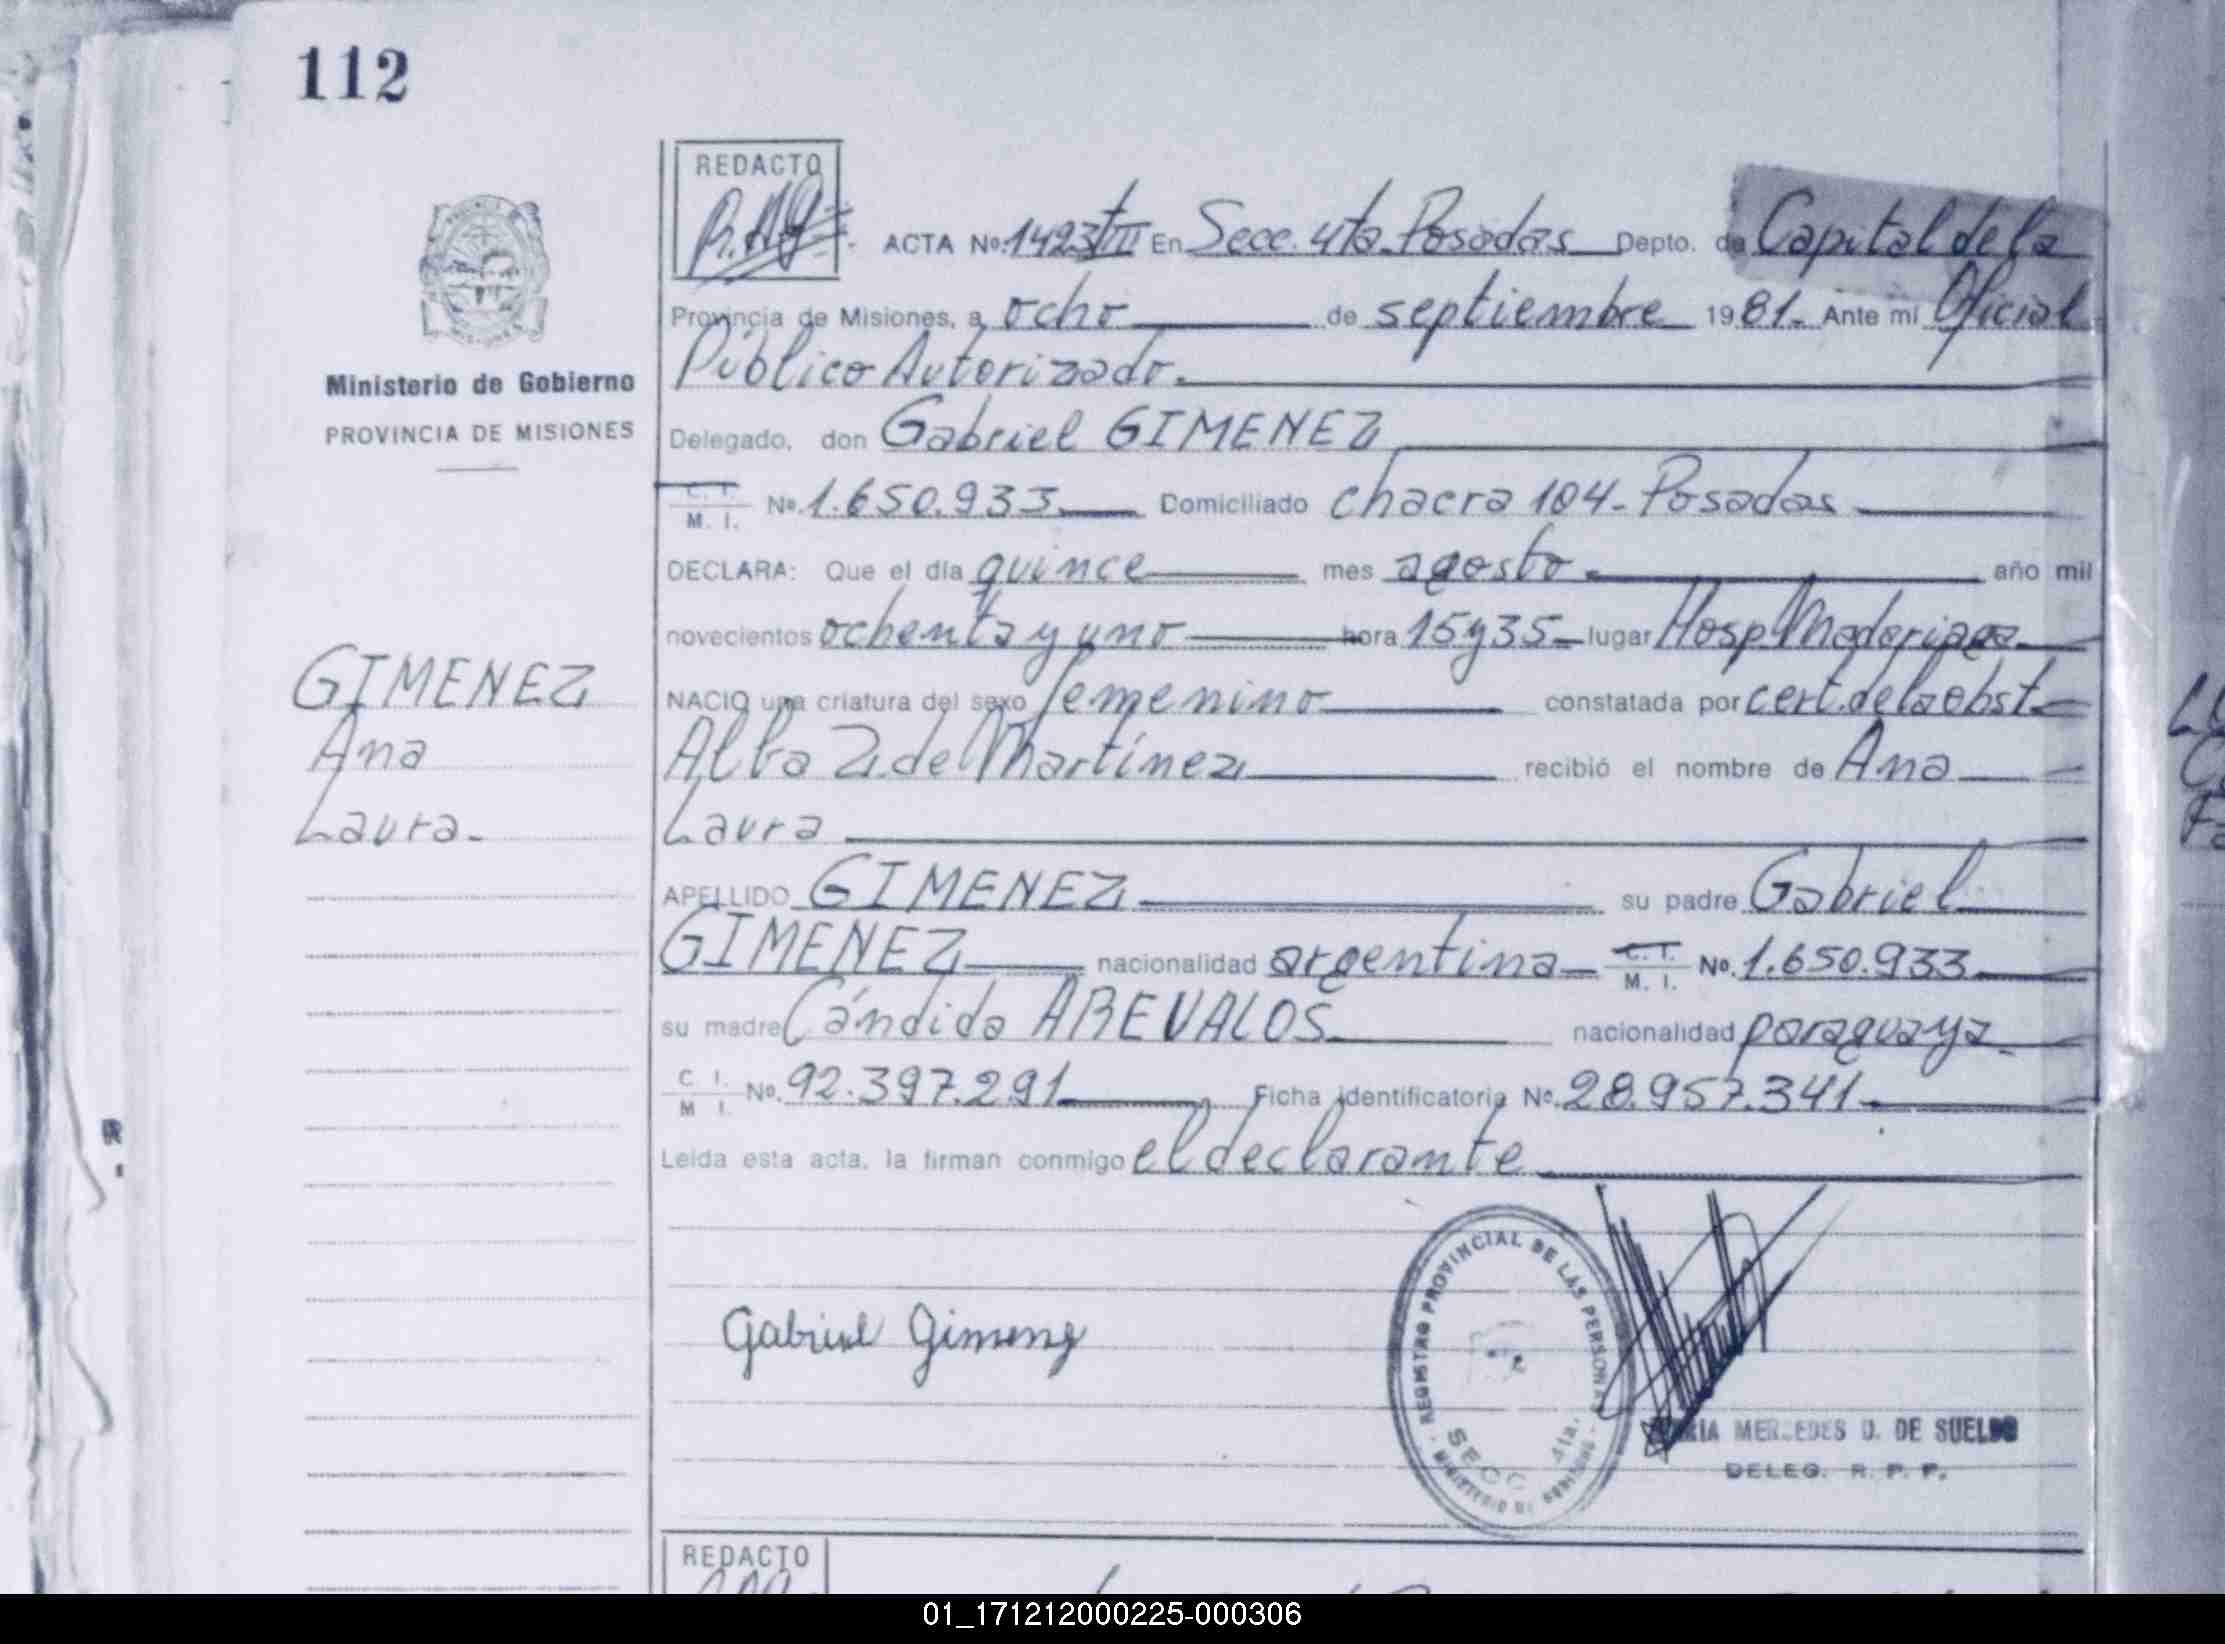 112
REDACTO
ACTA Nº. 1423 tº II En Secc. 4ta. Posadas Depto. de Capital de la
Provincia de Misiones, a ocho de septiembre 1981.- Ante mi Oficial
Público Autorizado.
Ministerio de Gobierno
PROVINCIA DE MISIONES
Delegado, don Gabriel GIMENEZ
C. I. M. I. Nº. 1.650.933 Domiciliado chacra 104.- Posadas
DECLARA: Que el día quince mes agosto. año mil
novecientos ochenta y uno hora 15 y 35 lugar Hosp. Madariaga
NACIO una criatura del sexo femenino constatada por cert. de la obst.
Alba Z. de Martínez recibió el nombre de Ana
Laura
GIMENEZ
Ana
Laura.-
APELLIDO GIMENEZ su padre Gabriel
GIMENEZ nacionalidad argentina C. I. M. I. Nº. 1.650.933
su madre Cándida AREVALOS nacionalidad paraguaya.
C I. M I. Nº. 92.397.291 Ficha identificatoria Nº. 28.957.341
Leida esta acta, la firman conmigo el declarante
Gabriel Gimenez
REGISTRO PROVINCIAL DE LAS PERSONAS
SECC 4ta.
MINISTERIO DE GOBIERNO
MARIA MERCEDES D. DE SUELDO
DELEG. R. P. P.
REDACTO
01_171212000225-000306